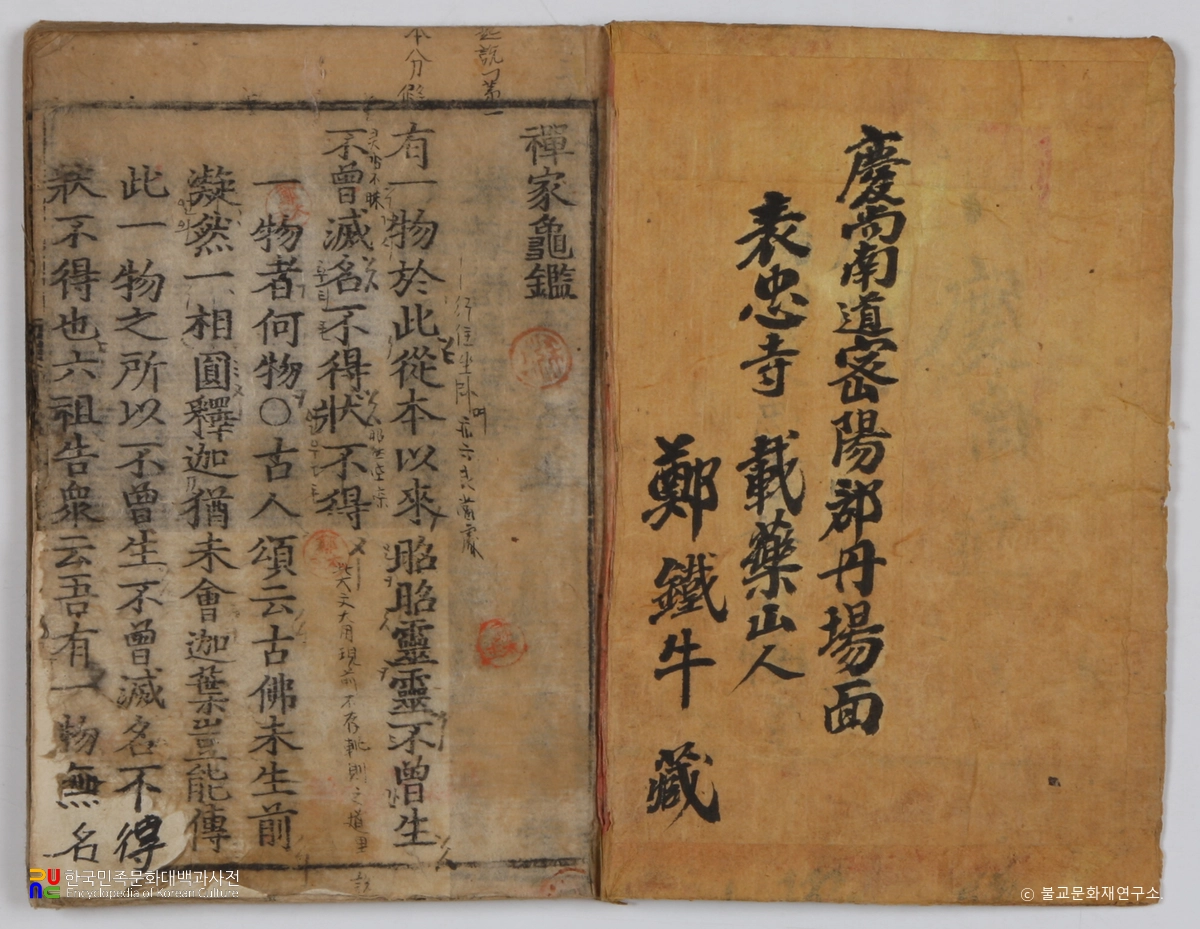 慶尚南道密陽郡丹場面
表忠寺 載藥山人
鄭鐵牛 藏
禪家龜鑑
有一物於此從本以來昭昭靈靈不曾生
不曾滅名不得狀不得
一物者何物〇古人頌云古佛未生前
凝然一相圓釋迦猶未會迦葉豈能傳
此一物之所以不曾生不曾滅名不得
狀不得也六祖告衆云吾有一物無名
한국민족문화대백과사전
Encyclopedia of Korean Culture
© 불교문화재연구소.